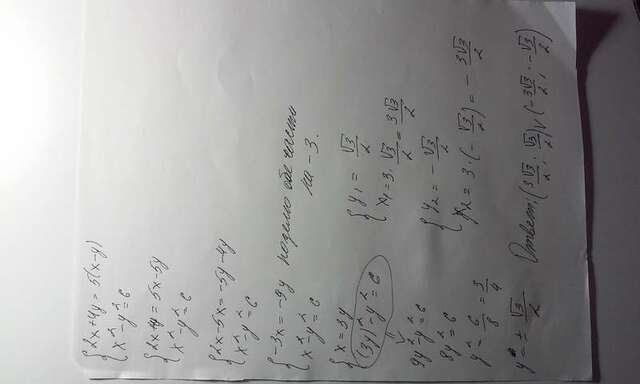 {2x+4y=5(x-y)
{x²-y²=6
{2x+4y=5x-5y
{x²-y²=6
{2x-5x=-5y-4y
{x²-y²=6
{-3x=-9y поделю обе части
{x²-y²=6 на -3.
{x=3y
{(3y)²-y²=6
9y²-y²=6
8y²=6
y²=6/8=3/4
y=±√3/2
{y₁=√3/2
{x₁=3·√3/2=3√3/2
{y₂=-√3/2
{x₂=3·(-√3/2)=-3√3/2
Ответ: (3√3/2; √3/2) ∨ (-3√3/2; -√3/2)